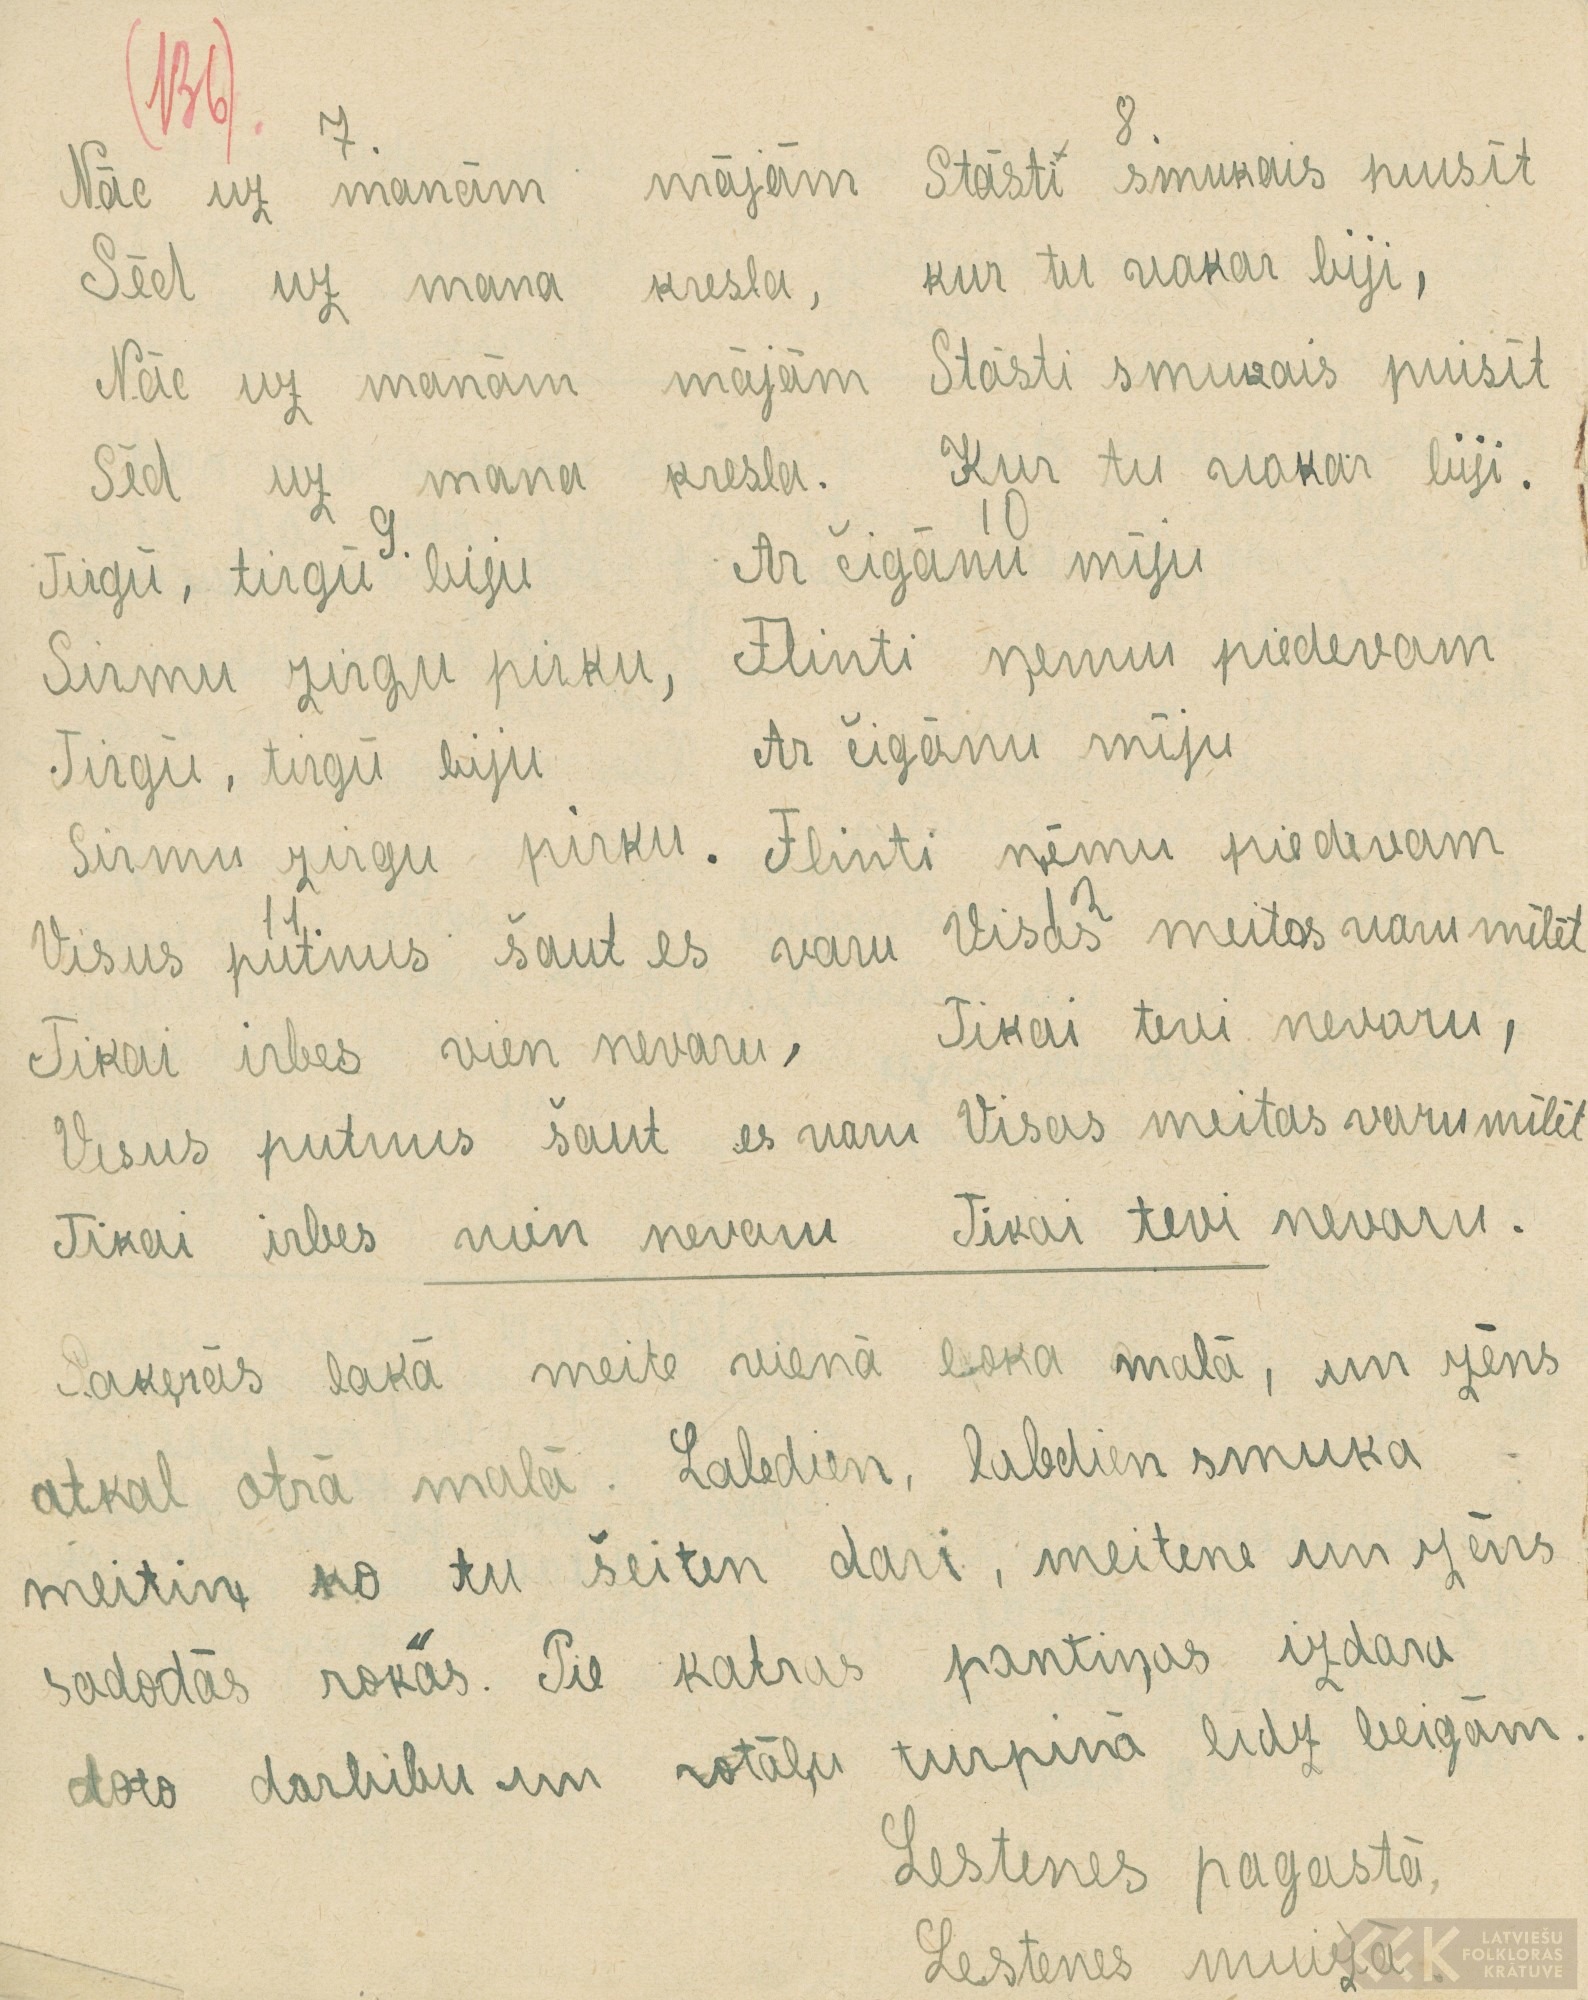 (136).
7.
Nāc uz manām mājām
Sēd uz mana kresla,
Nāc uz manām mājām
Sēd uz mana kresla.
8.
Stāsti smukais puisīt
kur tu vakar biji,
Stāsti smukais puisīt
Kur tu vakar biji.
9.
Tirgū, tirgū biju
Sirmu zirgu pirku,
Tirgū, tirgū biju
Sirmu zirgu pirku.
10
Ar čigānu mīju
Flinti ņemu piedevam
Ar čigānu mīju
Flinti ņēmu piedevam
11.
Visus putnus šaut es varu
Tikai irbes vien nevaru,
Visus putnus šaut es varu
Tikai irbes vien nevaru
12
Visas meitas varu mīlēt
Tikai tevi nevaru,
Visas meitas varu mīlēt
Tikai tevi nevaru.
Sakeŗās lokā meite vienā loka malā, un zēns
atkal otrā malā. Labdien, labdien smuka
meitiņ ko tu šeiten dari, meitene un zēns
sadodās rokās. Pie katras pantiņas izdara
doto darbibu un rotāļu turpinā līdz beigām.
Lestenes pagastā,
Lestenes muižā.
LATVIEŠU
FOLKLORAS
KRĀTUVE